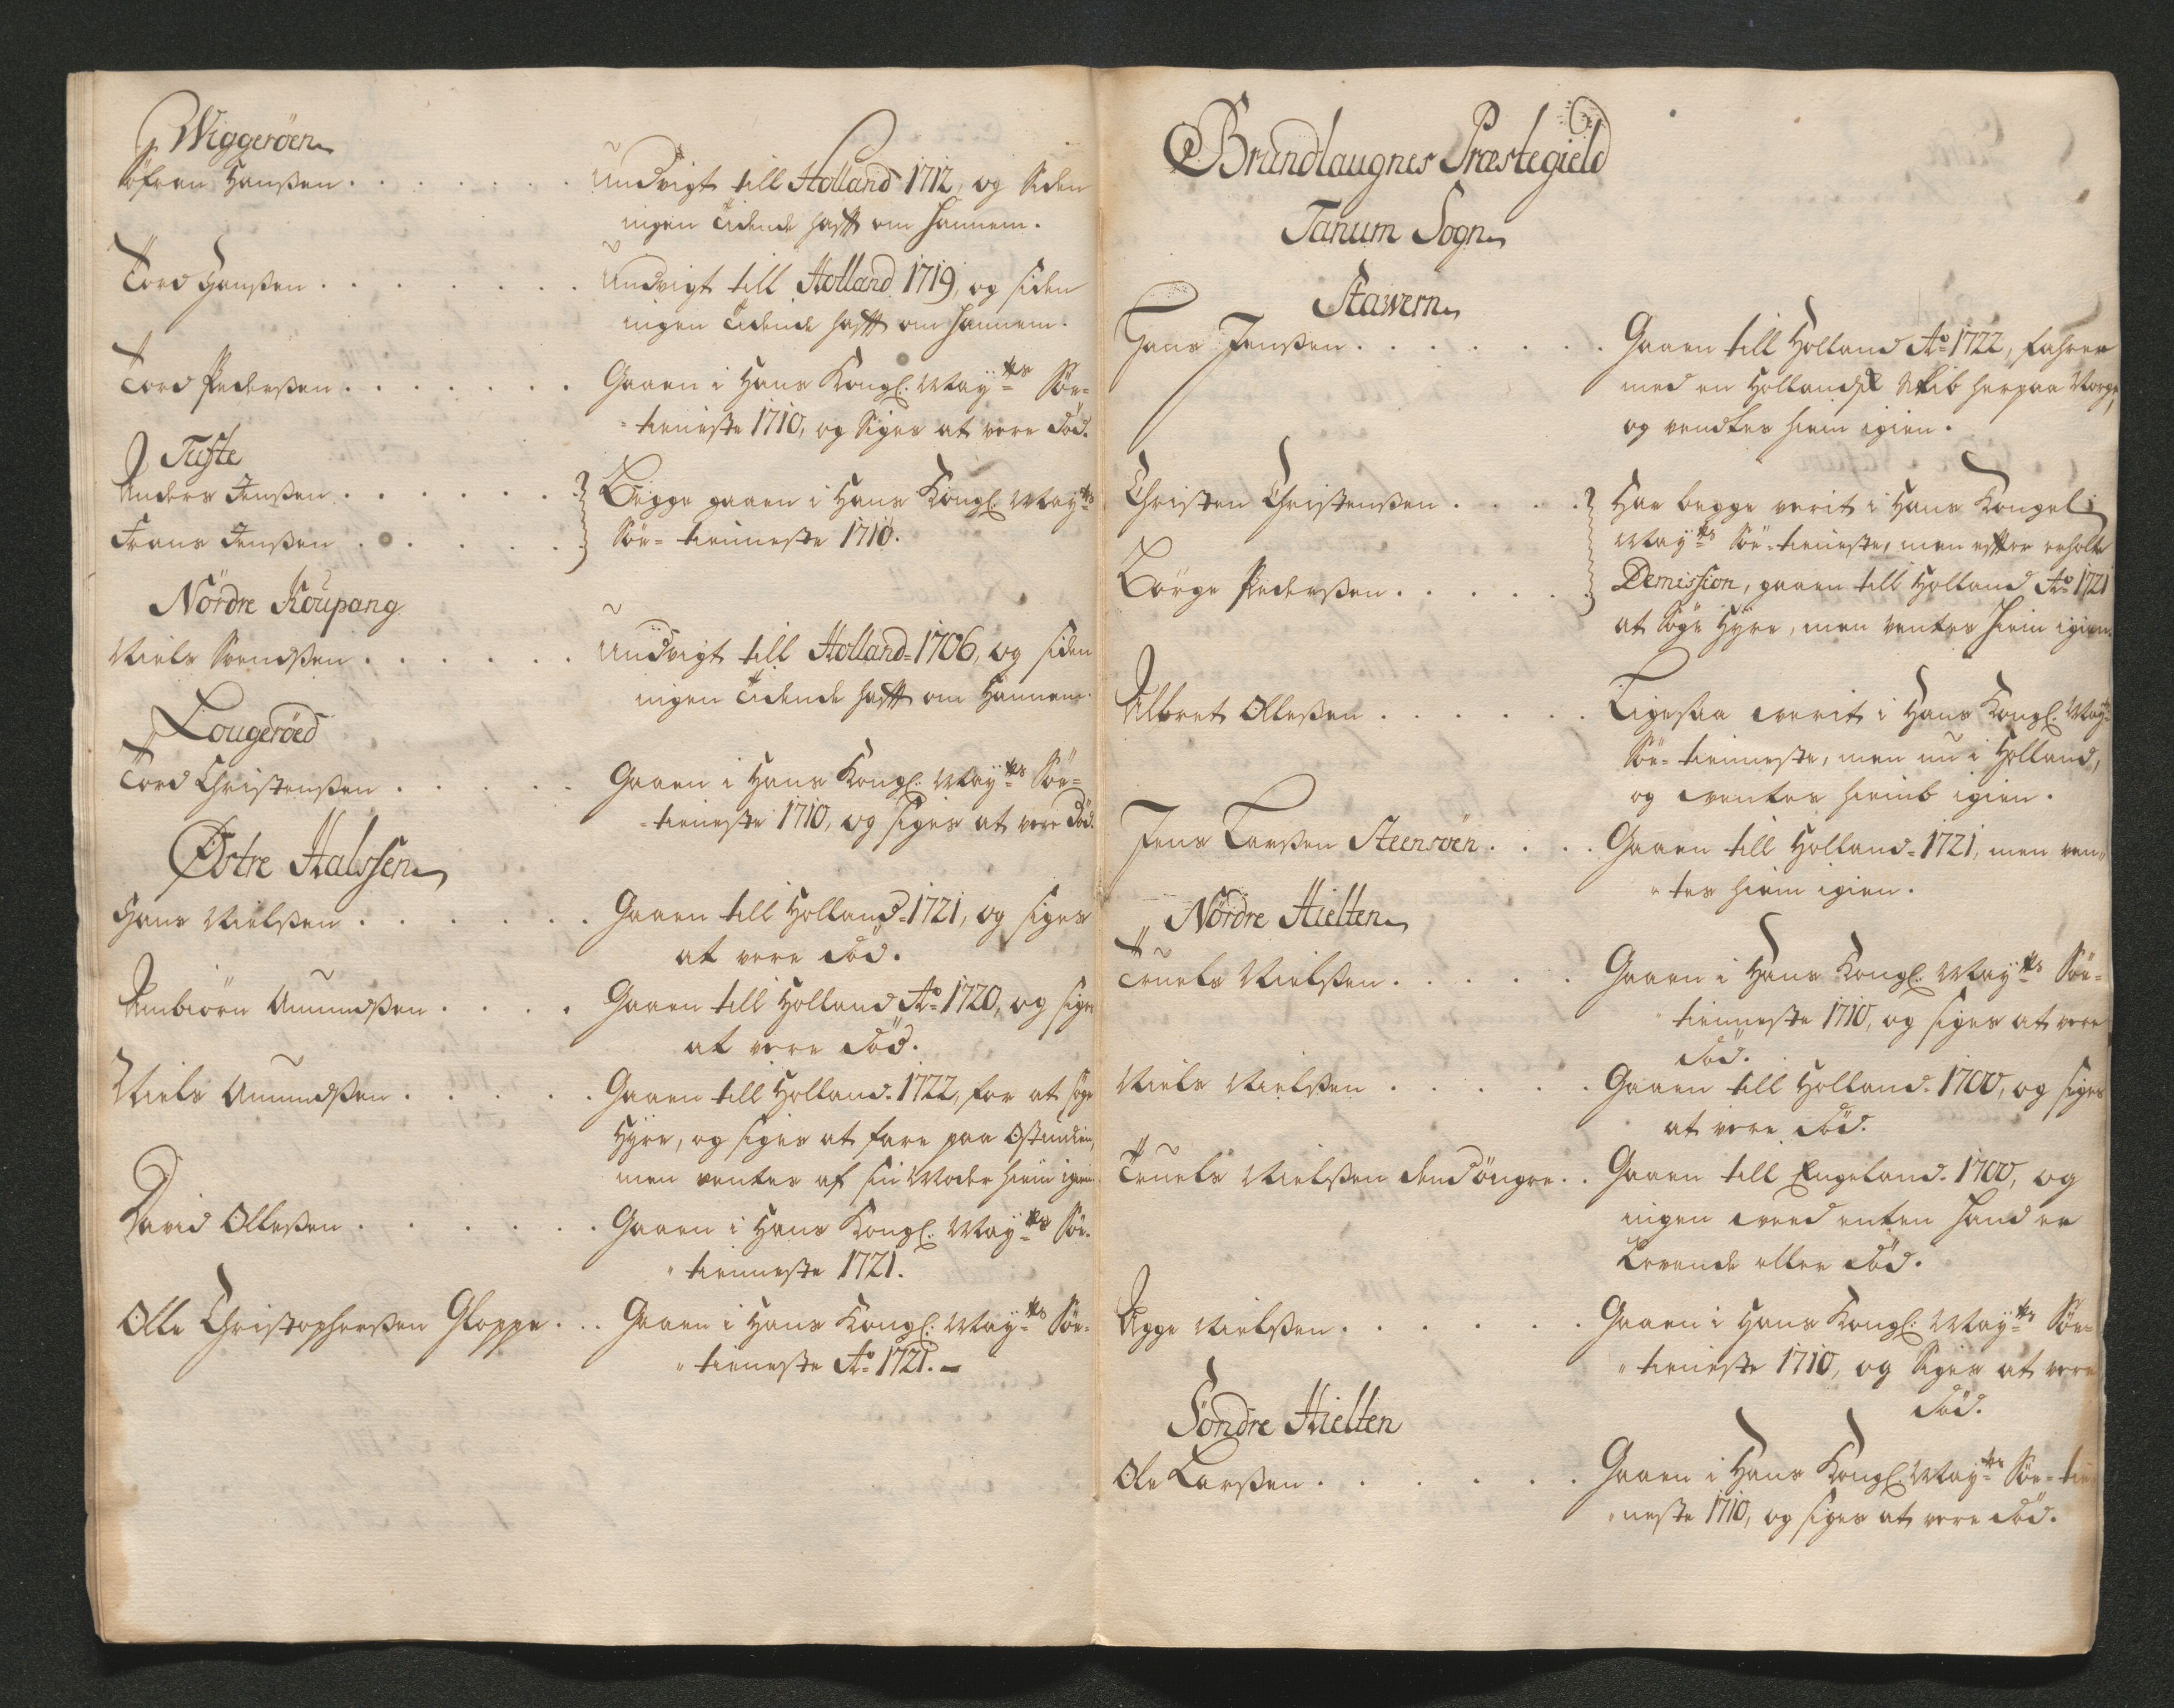 Wiggerøen
Søfren Hanßen . . . . . . . Undvigt till Holland 1712, og siden
ingen Tidende hafft om hannem.
Tord Hanßen . . . . . . . Undvigt till Holland 1719, og siden
ingen Tidende hafft om hannem.
Tord Pederßen . . . . . . . Gaaen i Hans Kongl. May:ts Søe-
-tieniste 1710, og siges at vere død.
Tuste
Anders Jenßen . . . . . . . Begge gaaen i Hans Kongl. May:ts
Frans Jenßen . . . . . . Søe-tienneste 1710.
Nördre Koupang
Niels Svendßen . . . . . . Undvigt till Holland-1706, og siden
ingen Tidende hafft om hannem.
Lougeröed
Tord Christenßen . . . . . Gaaen i Hans Kongl. May:ts Søe-
-tieneste 1710, og siges at vere død.
Østre Halssen
Hans Nielßen . . . . . . Gaaen till Holland-1721, og siges
at vere død.
Ambiørn Amundßen . . . . Gaaen till Holland Ao 1720, og siges
at vere død.
Niels Amundßen . . . . . Gaaen till Holland-1722, for at søge
Hyre, og siges at fare paa Ostindien,
men ventes af sin Moder hiem igien.
David Olleßen . . . . . . Gaaen i Hans Kongl. May:ts Søe-
-tienneste 1721.
Olle Christopherßen Gloppe . . . Gaaen i Hans Kongl. May:ts Søe-
-tieneste Ao 1721.-
Brundlaugnes Præstegield
Tanum Sogn
Stawern
Hans Jenßen . . . . . . . Gaaen till Holland Ao 1722, fahrer
med en Hollandsk Skib herpaa Norge,
og vendtes hiem igien.
Christen Christenßen . . . . Har begge verit i Hans Kongel:
May:ts Søe-tieneste, men effter erholte
Børge Pederßen . . . . . Demission, gaaen till Holland Ao 1721
at søge Hyre, men ventes hiem igien.
Albret Olleßen . . . . . . Ligesaa verit i Hans Kongl. May:ts
Søe-tienneste, men nu i Holland,
og ventes hiemb igien.
Jens Larßen Steensöen . . . . Gaaen till Holland-1721, men ven-
-tes hiem igien.
Nördre Hielten
Truels Nielßen . . . . . Gaaen i Hans Kongl. May:ts Søe-
tienneste 1710, og siges at vere
død.
Niels Nielßen . . . . . Gaaen till Holland-1700, og siges
at vere død.
Truels Nielßen den Ỏngre . . Gaaen till Engeland-1700, og
ingen veed enten hand er
Levende eller død.
Agge Nielßen . . . . . . Gaaen i Hans Kongl. May:ts Søe-
-tieneste 1710, og siges at vere
død.
Söndre Hielten
Ole Larßen . . . . . . Gaaen i Hans Kongl. May:ts Søe-tie-
-neste 1710, og siges at vere død.